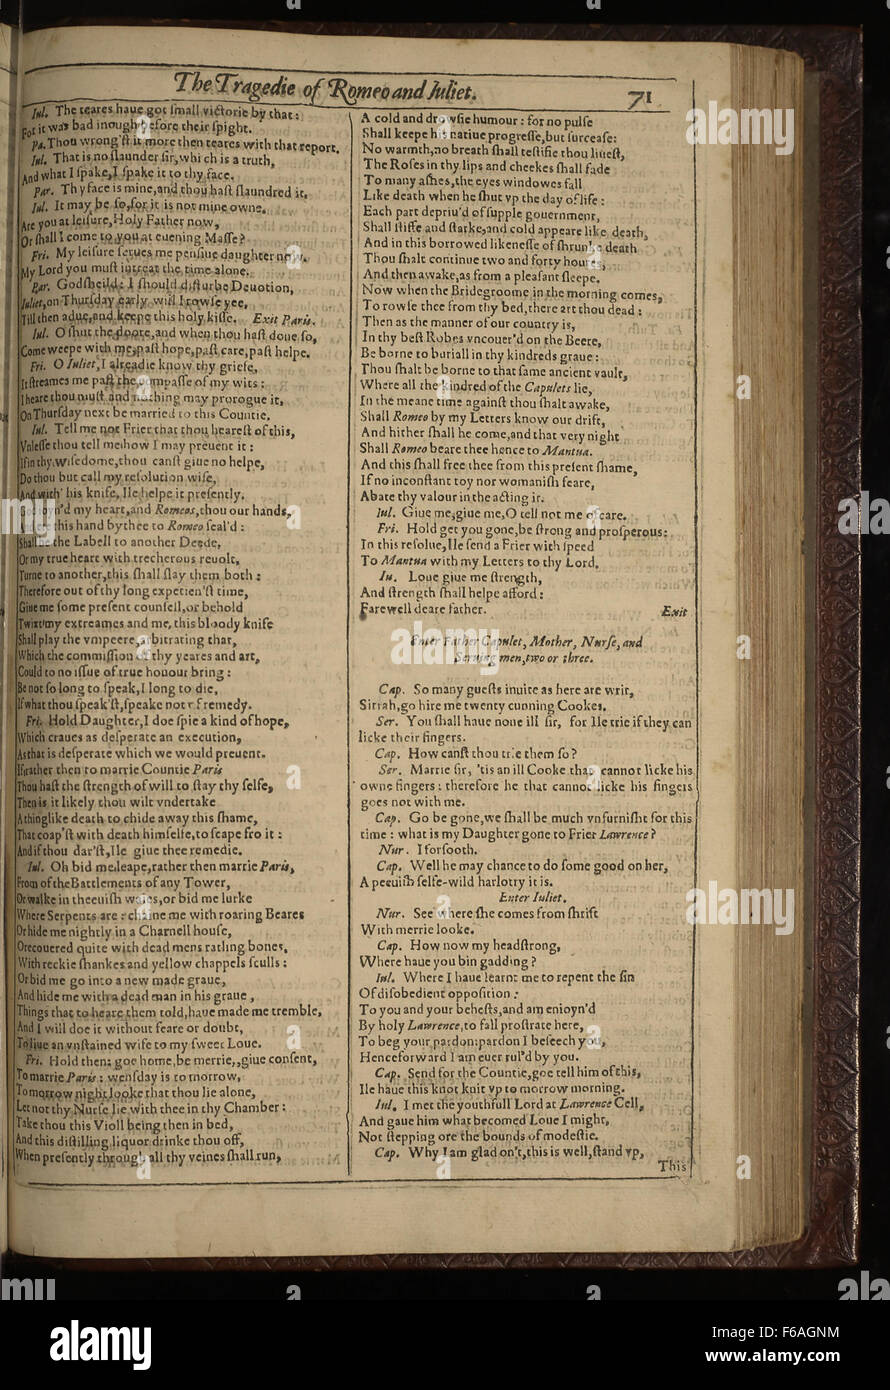 The Tragedie of Romeo and Iuliet.
71
Iul. The teares haue got ſmall victorie by that:
For it was bad inough before their ſpight.
Pa. Thou wrong'ſt it more then teares with that report.
Iul. That is no ſlaunder ſir, which is a truth,
And what I ſpake, I ſpake it to thy face.
Par. Thy face is mine, and thou haſt ſlaundred it.
Iul. It may be ſo, for it is not mine owne.
Are you at leiſure, Holy Father now,
Or ſhall I come to you at euening Maſſe?
Fri. My leiſure ſerues me penſiue daughter now.
My Lord you muſt intreat the time alone.
Par. Godſheild: I ſhould diſturbe Deuotion,
Iuliet, on Thurſday early will I rowſe yee,
Till then adue, and keepe this holy kiſſe. Exit Paris.
Iul. O ſhut the doore, and when thou haſt done ſo,
Come weepe with me, paſt hope, paſt care, paſt helpe.
Fri. O Iuliet, I alreadie know thy griefe,
It ſtreames me paſt the compaſſe of my wits:
I heare thou muſt and nothing may prorogue it,
On Thurſday next be married to this Countie.
Iul. Tell me not Frier that thou heareſt of this,
Vnleſſe thou tell me how I may preuent it:
If in thy wiſedome, thou canſt giue no helpe,
Do thou but call my reſolution wiſe,
And with' his knife, Ile helpe it preſently.
God ioyn'd my heart, and Romeos, thou our hands,
this hand by thee to Romeo ſeal'd:
Shall be the Labell to another Deede,
Or my true heart with trecherous reuolt,
Turne to another, this ſhall ſlay them both:
Therefore out of thy long expetien'ſt time,
Giue me ſome preſent counſell, or behold
Twixt my extreames and me, this bloody knife
Shall play the vmpeere, arbitrating that,
Which the commiſſion of thy yeares and art,
Could to no iſſue of true honour bring:
Be not ſo long to ſpeak, I long to die,
If what thou ſpeak'ſt, ſpeake not of remedy.
Fri. Hold Daughter, I doe ſpie a kind of hope,
Which craues as deſperate an execution,
As that is deſperate which we would preuent.
If rather then to marrie Countie Paris
Thou haſt the ſtrength of will to ſtay thy ſelfe,
Then is it likely thou wilt vndertake
A thinglike death to chide away this ſhame,
That coap'ſt with death himſelfe, to ſcape fro it:
And if thou dar'ſt, Ile giue thee remedie.
Iul. Oh bid me leape, rather then marrie Paris,
From of the Battlements of any Tower,
Or walke in theeuiſh waies, or bid me lurke
Where Serpents are: chaine me with roaring Beares
Or hide me nightly in a Charnell houſe,
Orecouered quite with dead mens ratling bones,
With reckie ſhankes and yellow chappels ſculls:
Or bid me go into a new made graue,
And hide me with a dead man in his graue,
Things that to heare them told, haue made me tremble,
And I will doe it without feare or doubt,
To liue an vnſtained wife to my ſweet Loue.
Fri. Hold then: goe home, be merrie,, giue conſent,
To marrie Paris: wenſday is to morrow,
Tomorrow night looke that thou lie alone,
Let not thy Nurſe lie with thee in thy Chamber:
Take thou this Violl being then in bed,
And this diſtilling liquor drinke thou off,
When preſently through all thy veines ſhall run,
A cold and drowſie humour: for no pulſe
Shall keepe his natiue progreſſe, but ſurceaſe:
No warmth, no breath ſhall teſtifie thou liueſt,
The Roſes in thy lips and cheekes ſhall fade
To many aſhes, the eyes windowes fall
Like death when he ſhut vp the day of life:
Each part depriu'd of ſupple gouernment,
Shall ſtiffe and ſtarke, and cold appeare like death,
And in this borrowed likeneſſe of ſhrunke death
Thou ſhalt continue two and forty houres,
And then awake, as from a pleaſant ſleepe.
Now when the Bridegroome in the morning comes,
To rowſe thee from thy bed, there art thou dead:
Then as the manner of our country is,
In thy beſt Robes vncouer'd on the Beere,
Be borne to buriall in thy kindreds graue:
Thou ſhalt be borne to that ſame ancient vault,
Where all the kindred of the Capulets lie,
In the meane time againſt thou ſhalt awake,
Shall Romeo by my Letters know our drift,
And hither ſhall he come, and that very night
Shall Romeo beare thee hence to Mantua.
And this ſhall free thee from this preſent ſhame,
If no inconſtant toy nor womaniſh feare,
Abate thy valour in the acting it.
Iul. Giue me, giue me, O tell not me of care.
Fri. Hold get you gone, be ſtrong and proſperous:
In this reſolue, Ile ſend a Frier with ſpeed
To Mantua with my Letters to thy Lord.
Iu. Loue giue me ſtrength,
And ſtrength ſhall helpe afford:
Farewell deare father. Exit
Enter Father Capulet, Mother, Nurſe, and
Seruing men, two or three.
Cap. So many gueſts inuite as here are writ,
Sirrah, go hire me twenty cunning Cookes.
Ser. You ſhall haue none ill ſir, for Ile trie if they can
licke their fingers.
Cap. How canſt thou trie them ſo?
Ser. Marrie ſir, 'tis an ill Cooke that cannot licke his
owne fingers: therefore he that cannot licke his fingers
goes not with me.
Cap. Go be gone, we ſhall be much vnfurniſht for this
time: what is my Daughter gone to Frier Lawrence?
Nur. I forſooth.
Cap. Well he may chance to do ſome good on her,
A peeuiſh ſelfe-wild harlotry it is.
Enter Iuliet.
Nur. See where ſhe comes from ſhrift
With merrie looke.
Cap. How now my headſtrong,
Where haue you bin gadding?
Iul. Where I haue learnt me to repent the ſin
Of diſobedient oppoſition:
To you and your beheſts, and am enioyn'd
By holy Lawrence, to fall proſtrate here,
To beg your pardon: pardon I beſeech you,
Henceforward I am euer rul'd by you.
Cap. Send for the Countie, goe tell him of this,
Ile haue this knot knit vp to morrow morning.
Iul. I met the youthfull Lord at Lawrence Cell,
And gaue him what becomed Loue I might,
Not ſtepping ore the bounds of modeſtie.
Cap. Why I am glad on't, this is well, ſtand vp,
This
alamy
Image ID: F6AGNM
www.alamy.com